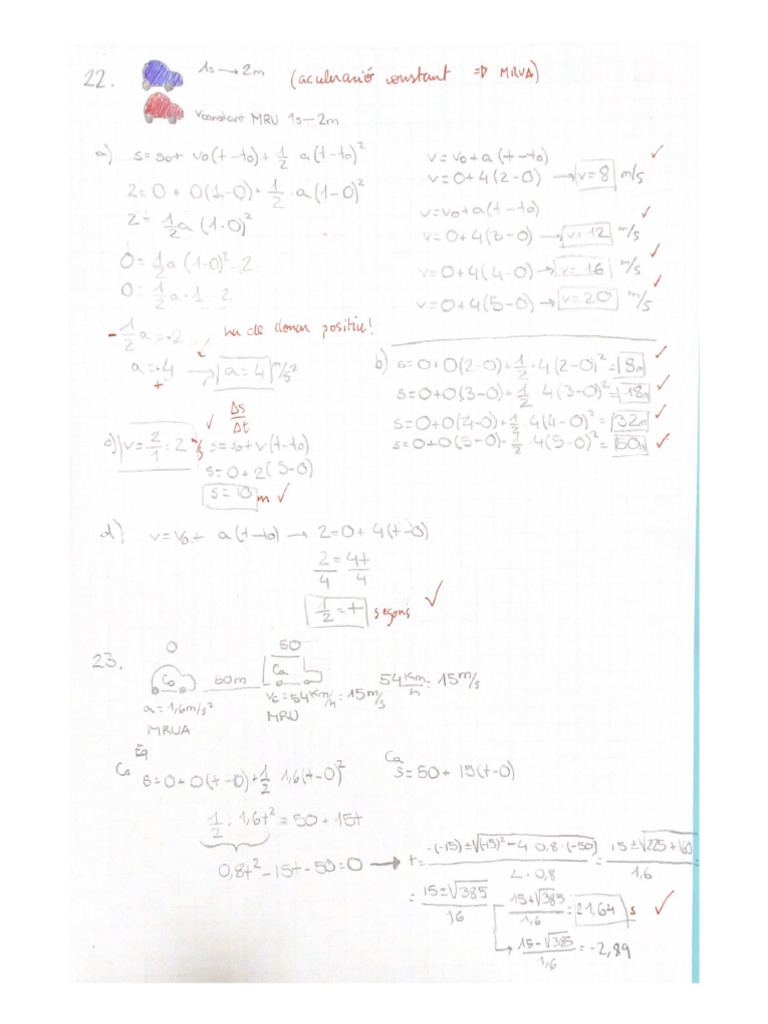 22. 1s → 2m (acceleració constant => MRUA)
Vconstant MRU 1s — 2m
a) s = s0 + v0(t-t0) + 1/2 a(t-t0)²
2 = 0 + 0(1-0) + 1/2 · a(1-0)²
2 = 1/2 a (1-0)²
0 = 1/2 a (1-0)² - 2
0 = 1/2 a · 1 - 2
- 1/2 a = -2 ha de donar positiu!
a = -4 → a = 4 m/s²
+
v = v0 + a(t-t0) ✓
v = 0 + 4(2-0) → v = 8 m/s
v = v0 + a(t-t0) ✓
v = 0 + 4(3-0) → v = 12 m/s
v = 0 + 4(4-0) → v = 16 m/s ✓
v = 0 + 4(5-0) → v = 20 m/s ✓
b) s = 0 + 0(2-0) + 1/2 · 4(2-0)² = 8m ✓
s = 0 + 0(3-0) + 1/2 · 4(3-0)² = 18m ✓
s = 0 + 0(4-0) + 1/2 · 4(4-0)² = 32m ✓
s = 0 + 0(5-0) + 1/2 · 4(5-0)² = 50m ✓
✓ Δs/Δt
c) v = 2/1 = 2 m/s s = s0 + v(t-t0)
s = 0 + 2(5-0)
s = 10 m ✓
d) v = v0 + a(t-t0) → 2 = 0 + 4(t-0)
2/4 = 4t/4
1/2 = t segons ✓
23. 0 50
Co 50m Ca 54 Km/h = 15 m/s
a = 1,6 m/s² vc = 54 Km/h = 15 m/s
MRUA MRU
Eq
Co s = 0 + 0(t-0) + 1/2 · 1,6(t-0)²
Ca s = 50 + 15(t-0)
1/2 · 1,6t² = 50 + 15t
0,8t² - 15t - 50 = 0 → t = -(-15) ± √(-15)² - 4 · 0,8 · (-50) / 2 · 0,8 = 15 ± √225 + 160 / 1,6 =
= 15 ± √385 / 16 → 15 + √385 / 1,6 = 21,64 s ✓
→ 15 - √385 / 1,6 = -2,89